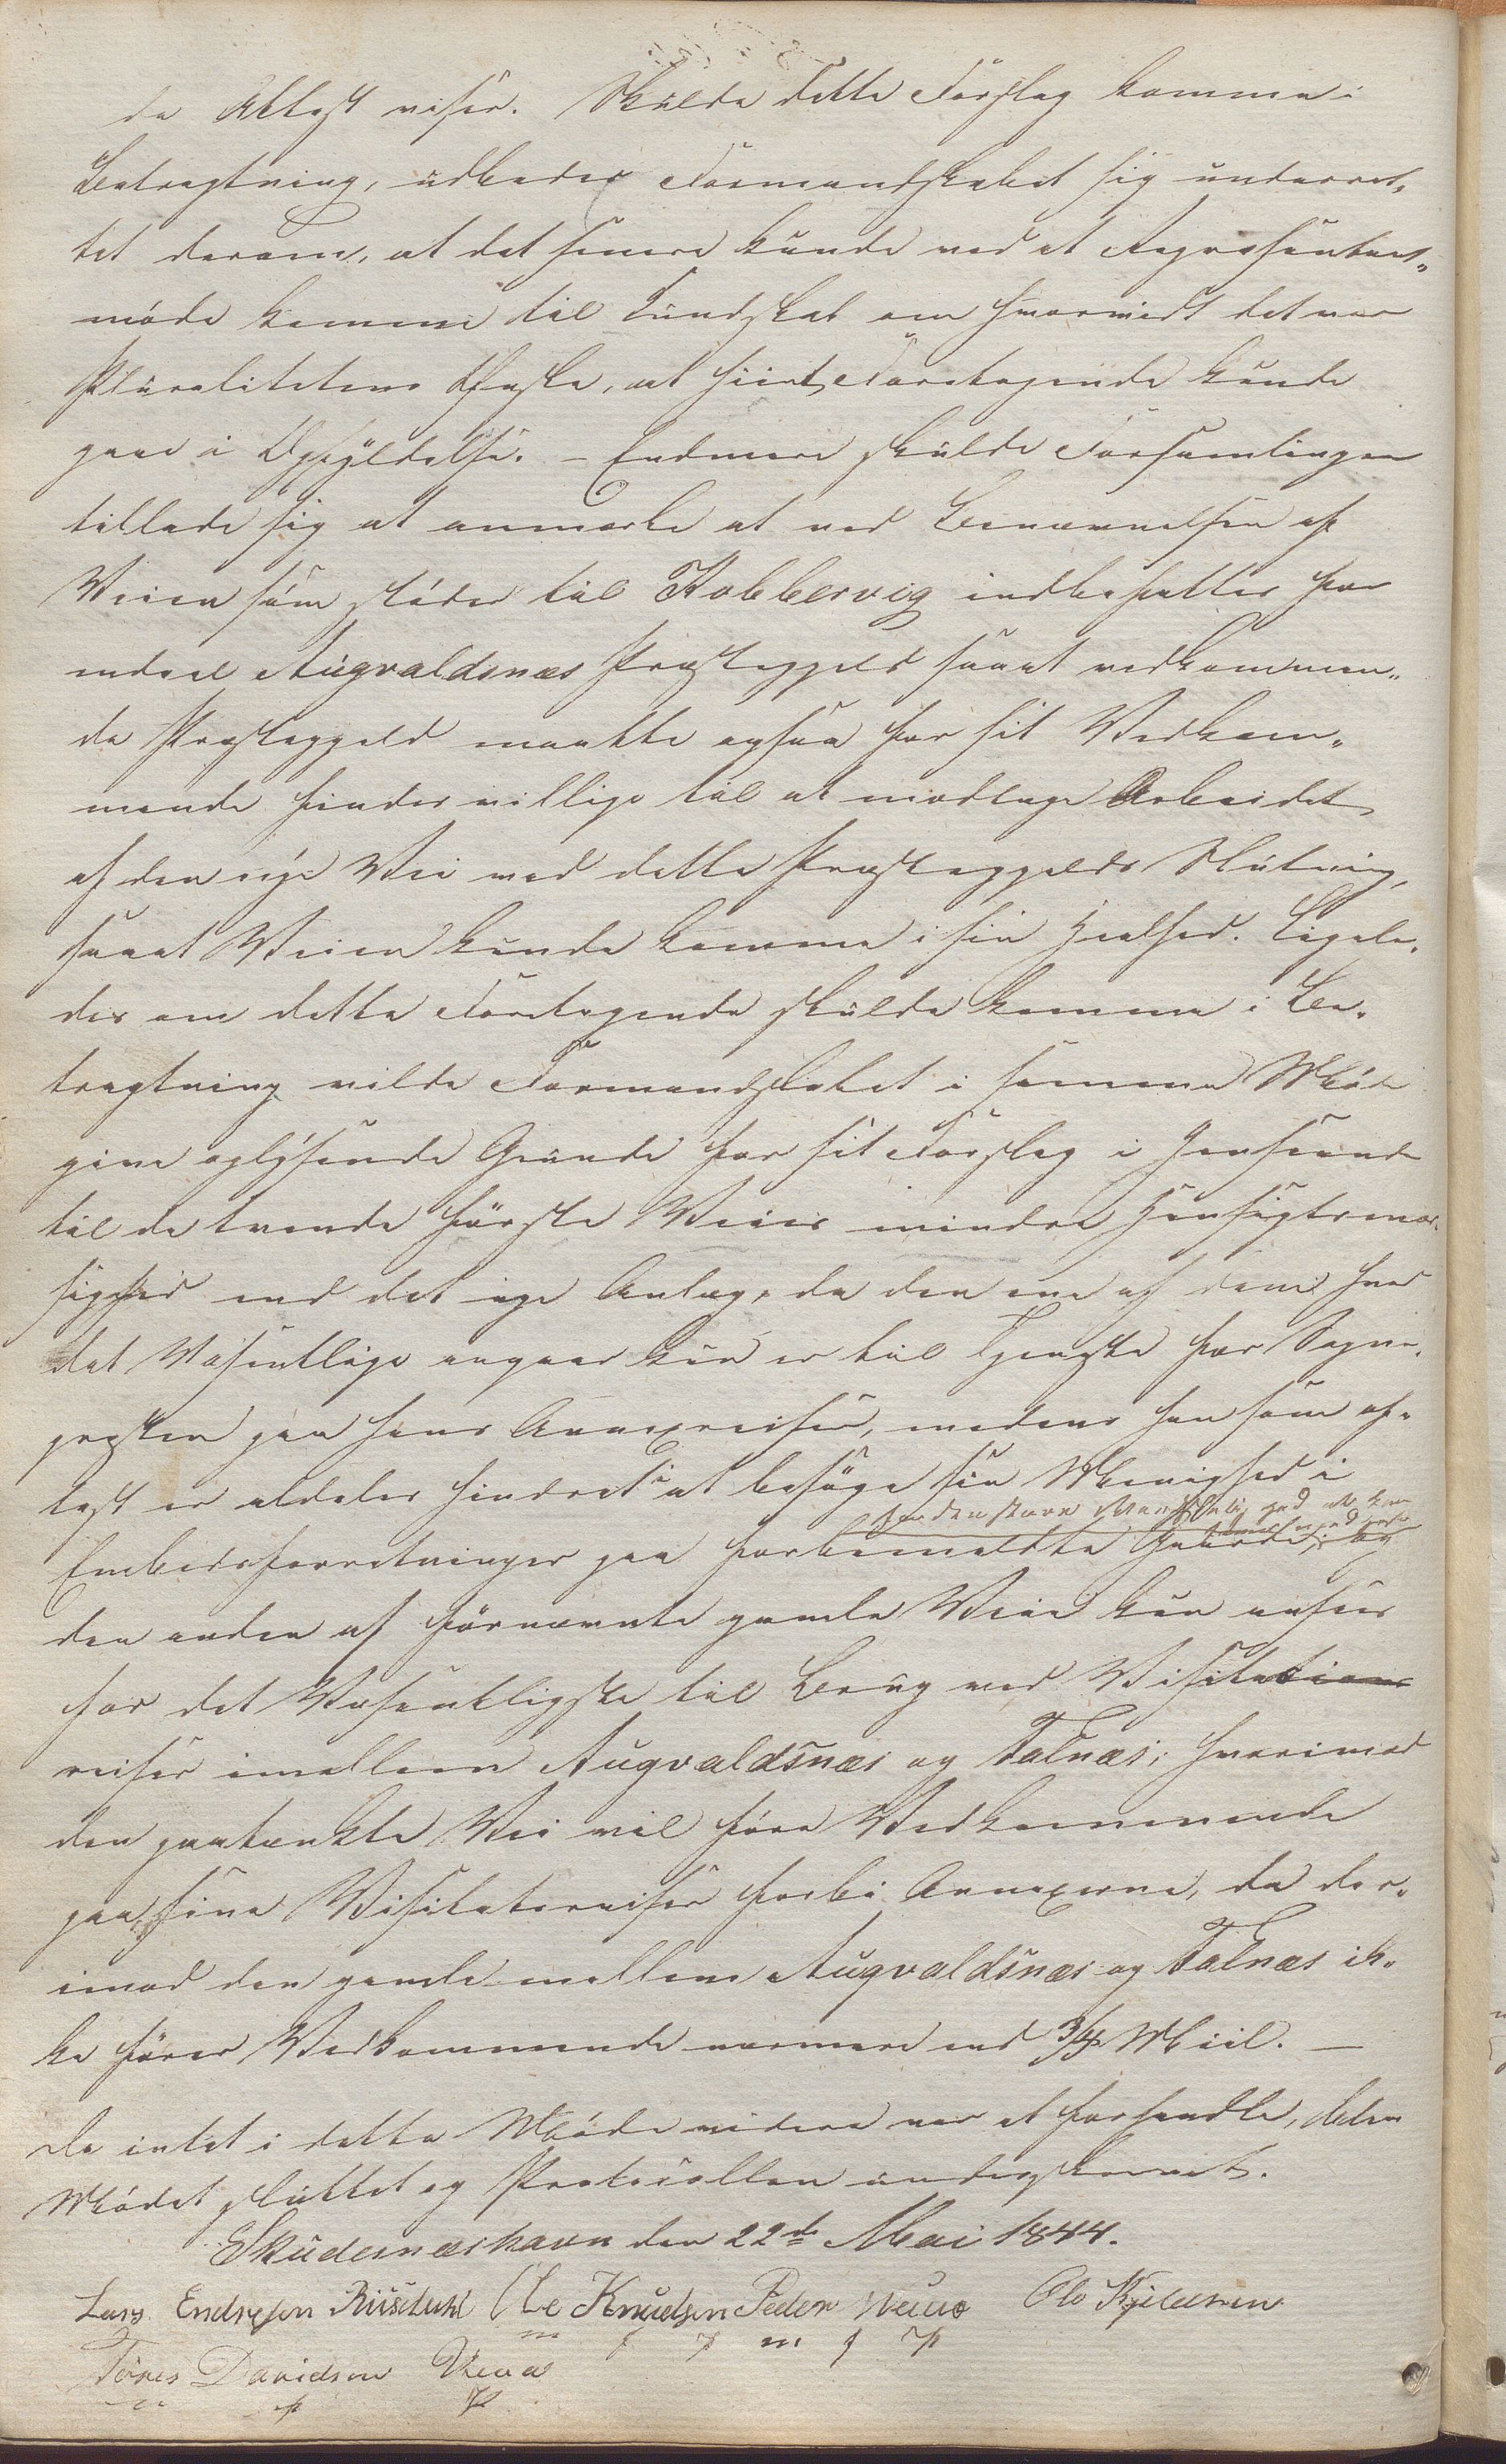 de Attest viser. Skulde dette Forslag komme i
Betragtning, udbeder Formandskabet sig underret„
tet derom, at det senere kunde ved et Repræsentant„
møde komme til Kundskab om hvorvidt det var
Pluralitetens Ønske, at hiint Foretagende kunde
gaae i Opfyldelse. – Endmere skulde Forsamlingen
tillade sig at anmærke at ved Benævnelsen af
Veien som støder til Kobbervig indbefattes for
endeel Augvaldsnæs Præstegjeld saaat vedkommen„
de Præstegjeld maatte ogsaa for sit Vedkom„
mende findes villige til at modtage Arbeidet
af den nye Vei ved dette Præstegjelds Slutning,
saaat Veien kunde komme i sin Heelhed. Ligele„
des om dette Foretagende skulde komme i Be„
tragtning vilde Formandskabet i samme Møde
give oplysende Grunde for sit Forslag i Henseende
til de tvende første Veies mindre Hensigtsmæs„
sighed end det nye Anlæg, da den ene af dem hvad
det Væsentlige angaar kun er til Tjeneste for Sogne„
præsten paa hans Annexreiser, medens han som of„
test er aldeles hindret i at besøge sin Menighed i
Embedsforretninger paa forbemeldte Gaarde, og
den anden af fornævnte gamle Veie kun ansees
for det Væsentligste til Brug ved Visitations
reiser imellem Augvaldsnæs og Falnæs; hvorimod
den paatænkte Vei vil føre Vedkommende
paa sine Visitatsreiser forbi Annexerne, da der„
imod den gamle mellem Augvaldsnæs og Falnæs ik„
ke fører Vedkommende nærmere end 3/4 Miil. –
Da intet i dette Møde videre var at forhandle, blev
Mødet sluttet og Protocollen underskrevet.
Skudesnæshavn den 22de Mai 1844.
Lars Endresen Ole Knudsen Peder Ole Kjeldsen
m f p m f p
Tøres Davidsen
m f p